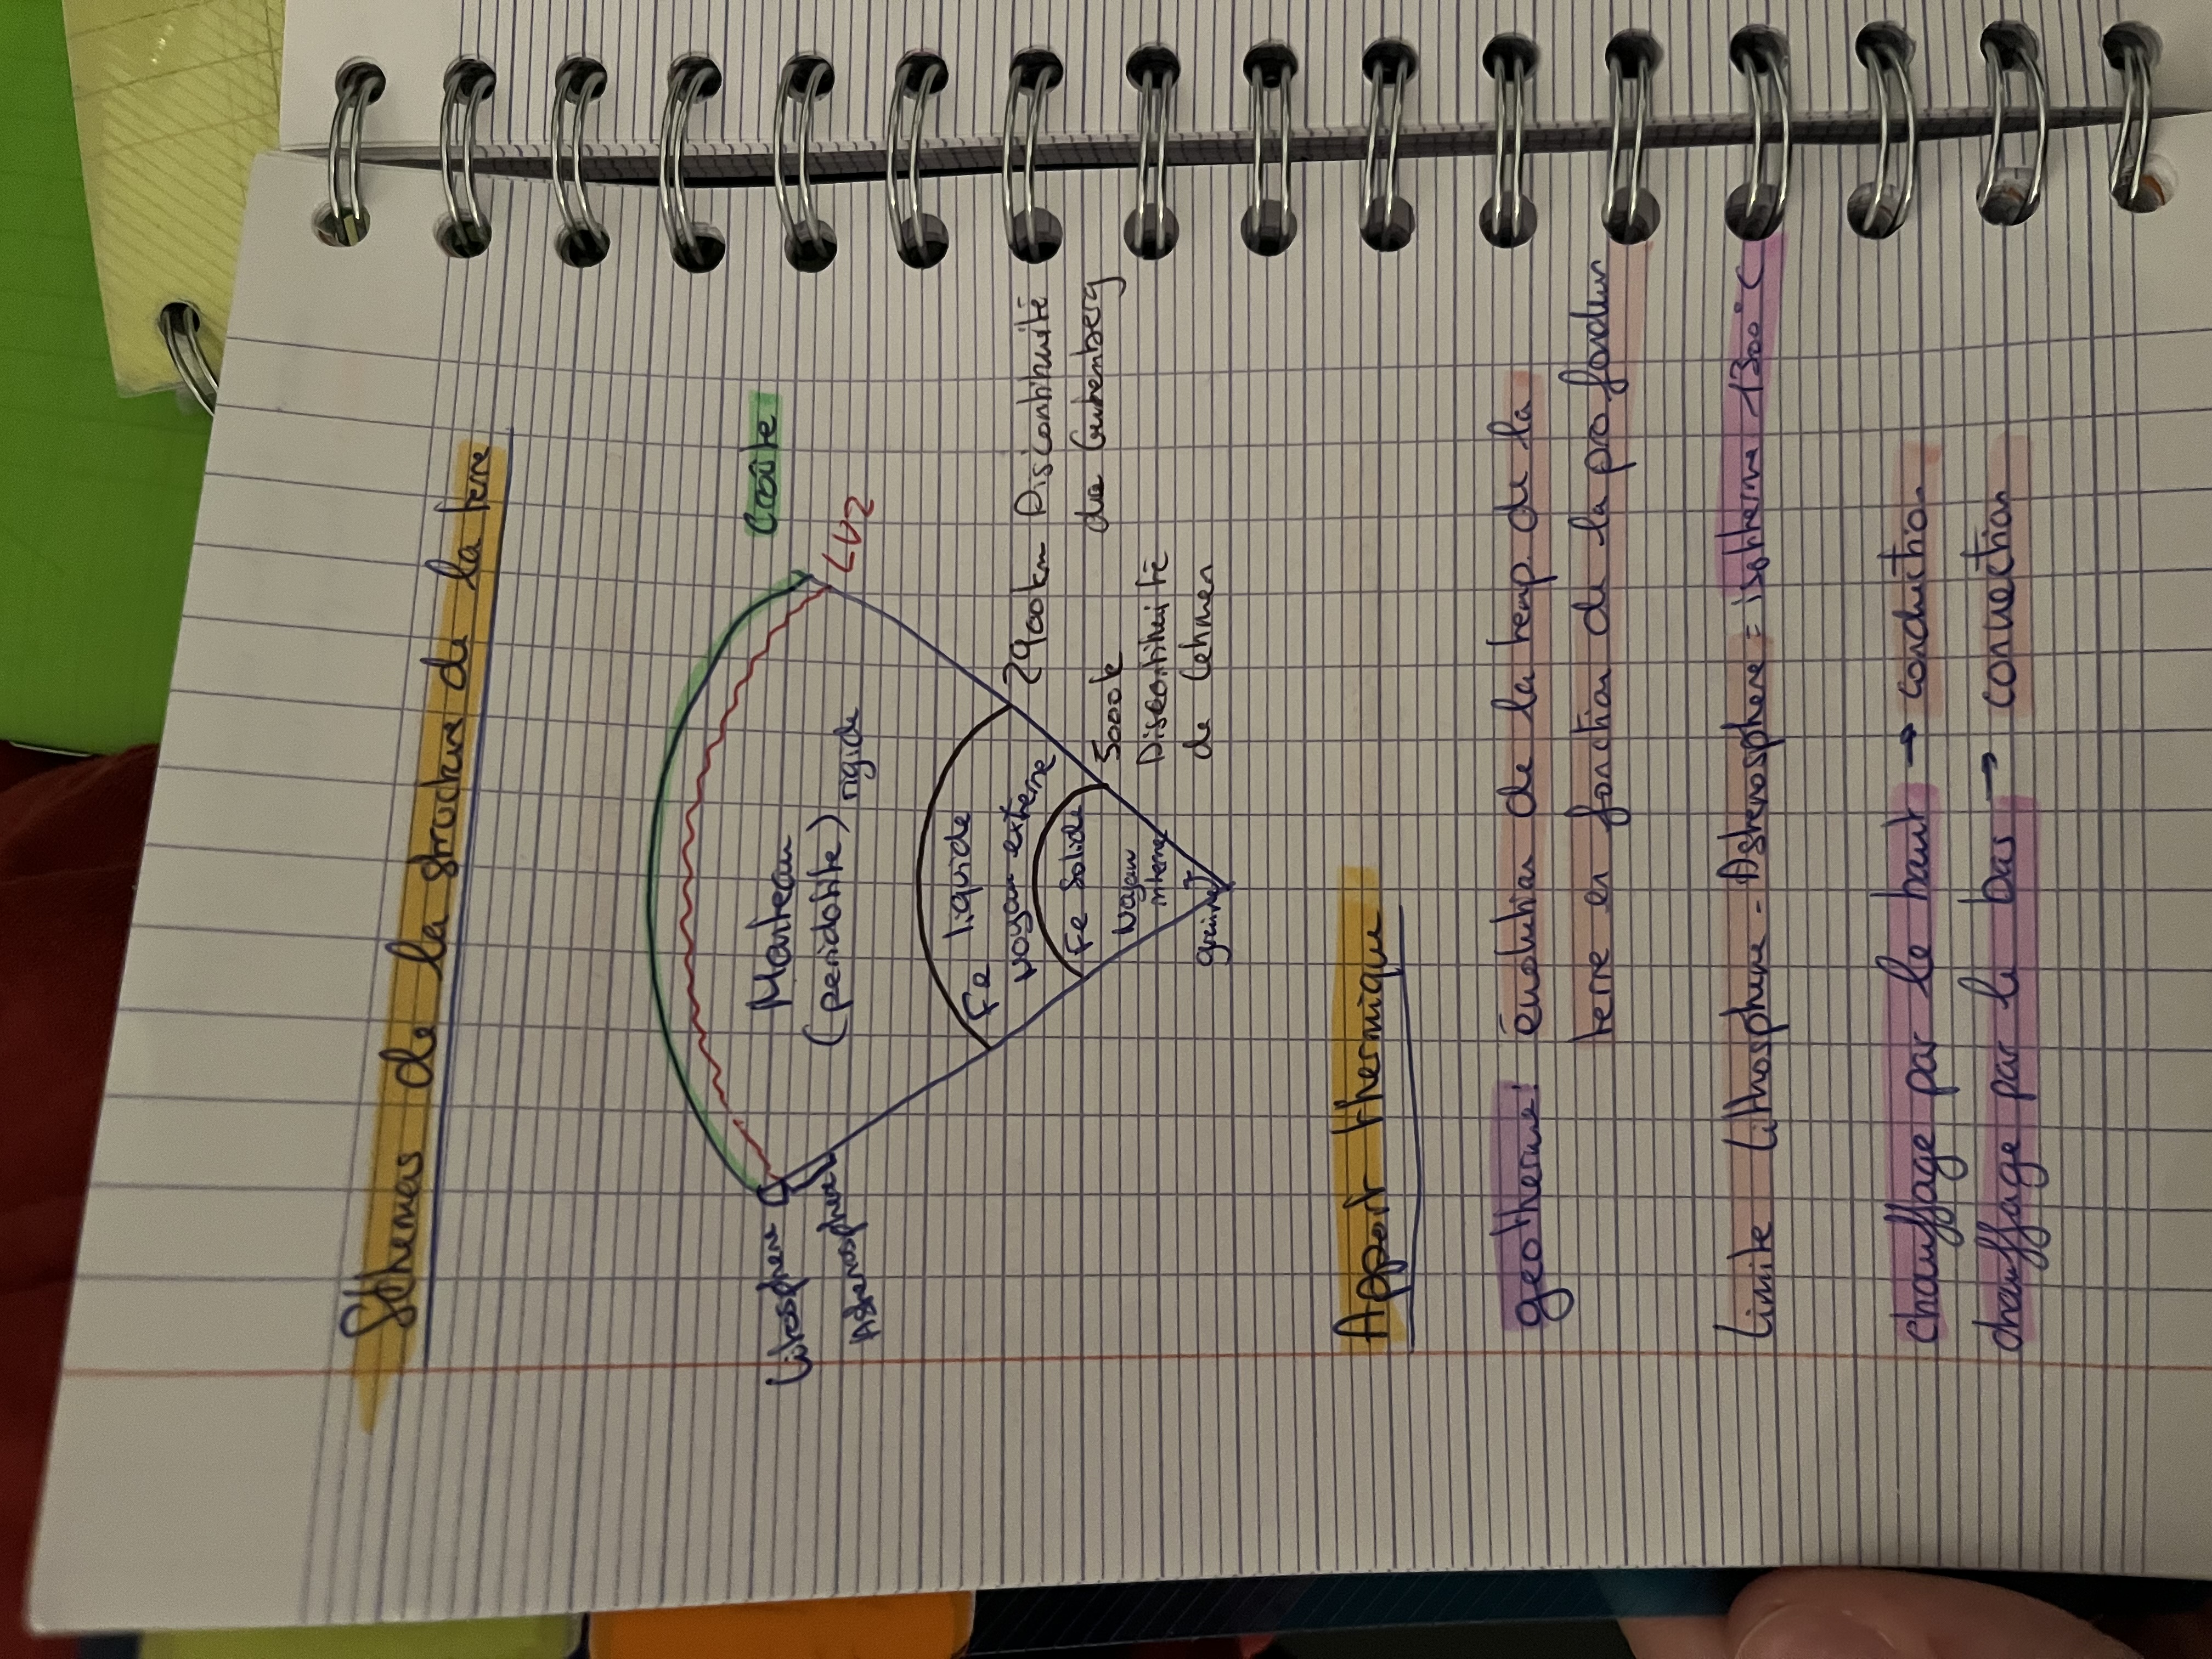 Sthemas de la structure de la terre
Croûte
LVZ
Litosphere
Asthenosphere
Manteau
(peridotite)
rigide
2900km Discontinuité
de Gutemberg
Fe liquide
noyau externe
5000k
Discontinuité
de Lehmen
Fe solide
Noyau
interne
graine
Apport thermique
geotherme: évolution de la temp. de la
terre en fonction de la profondeur
Limite Lithosphere - Asthenosphere = isotherme 1300°C
chauffage par le haut → conduction
chauffage par le bas → convection